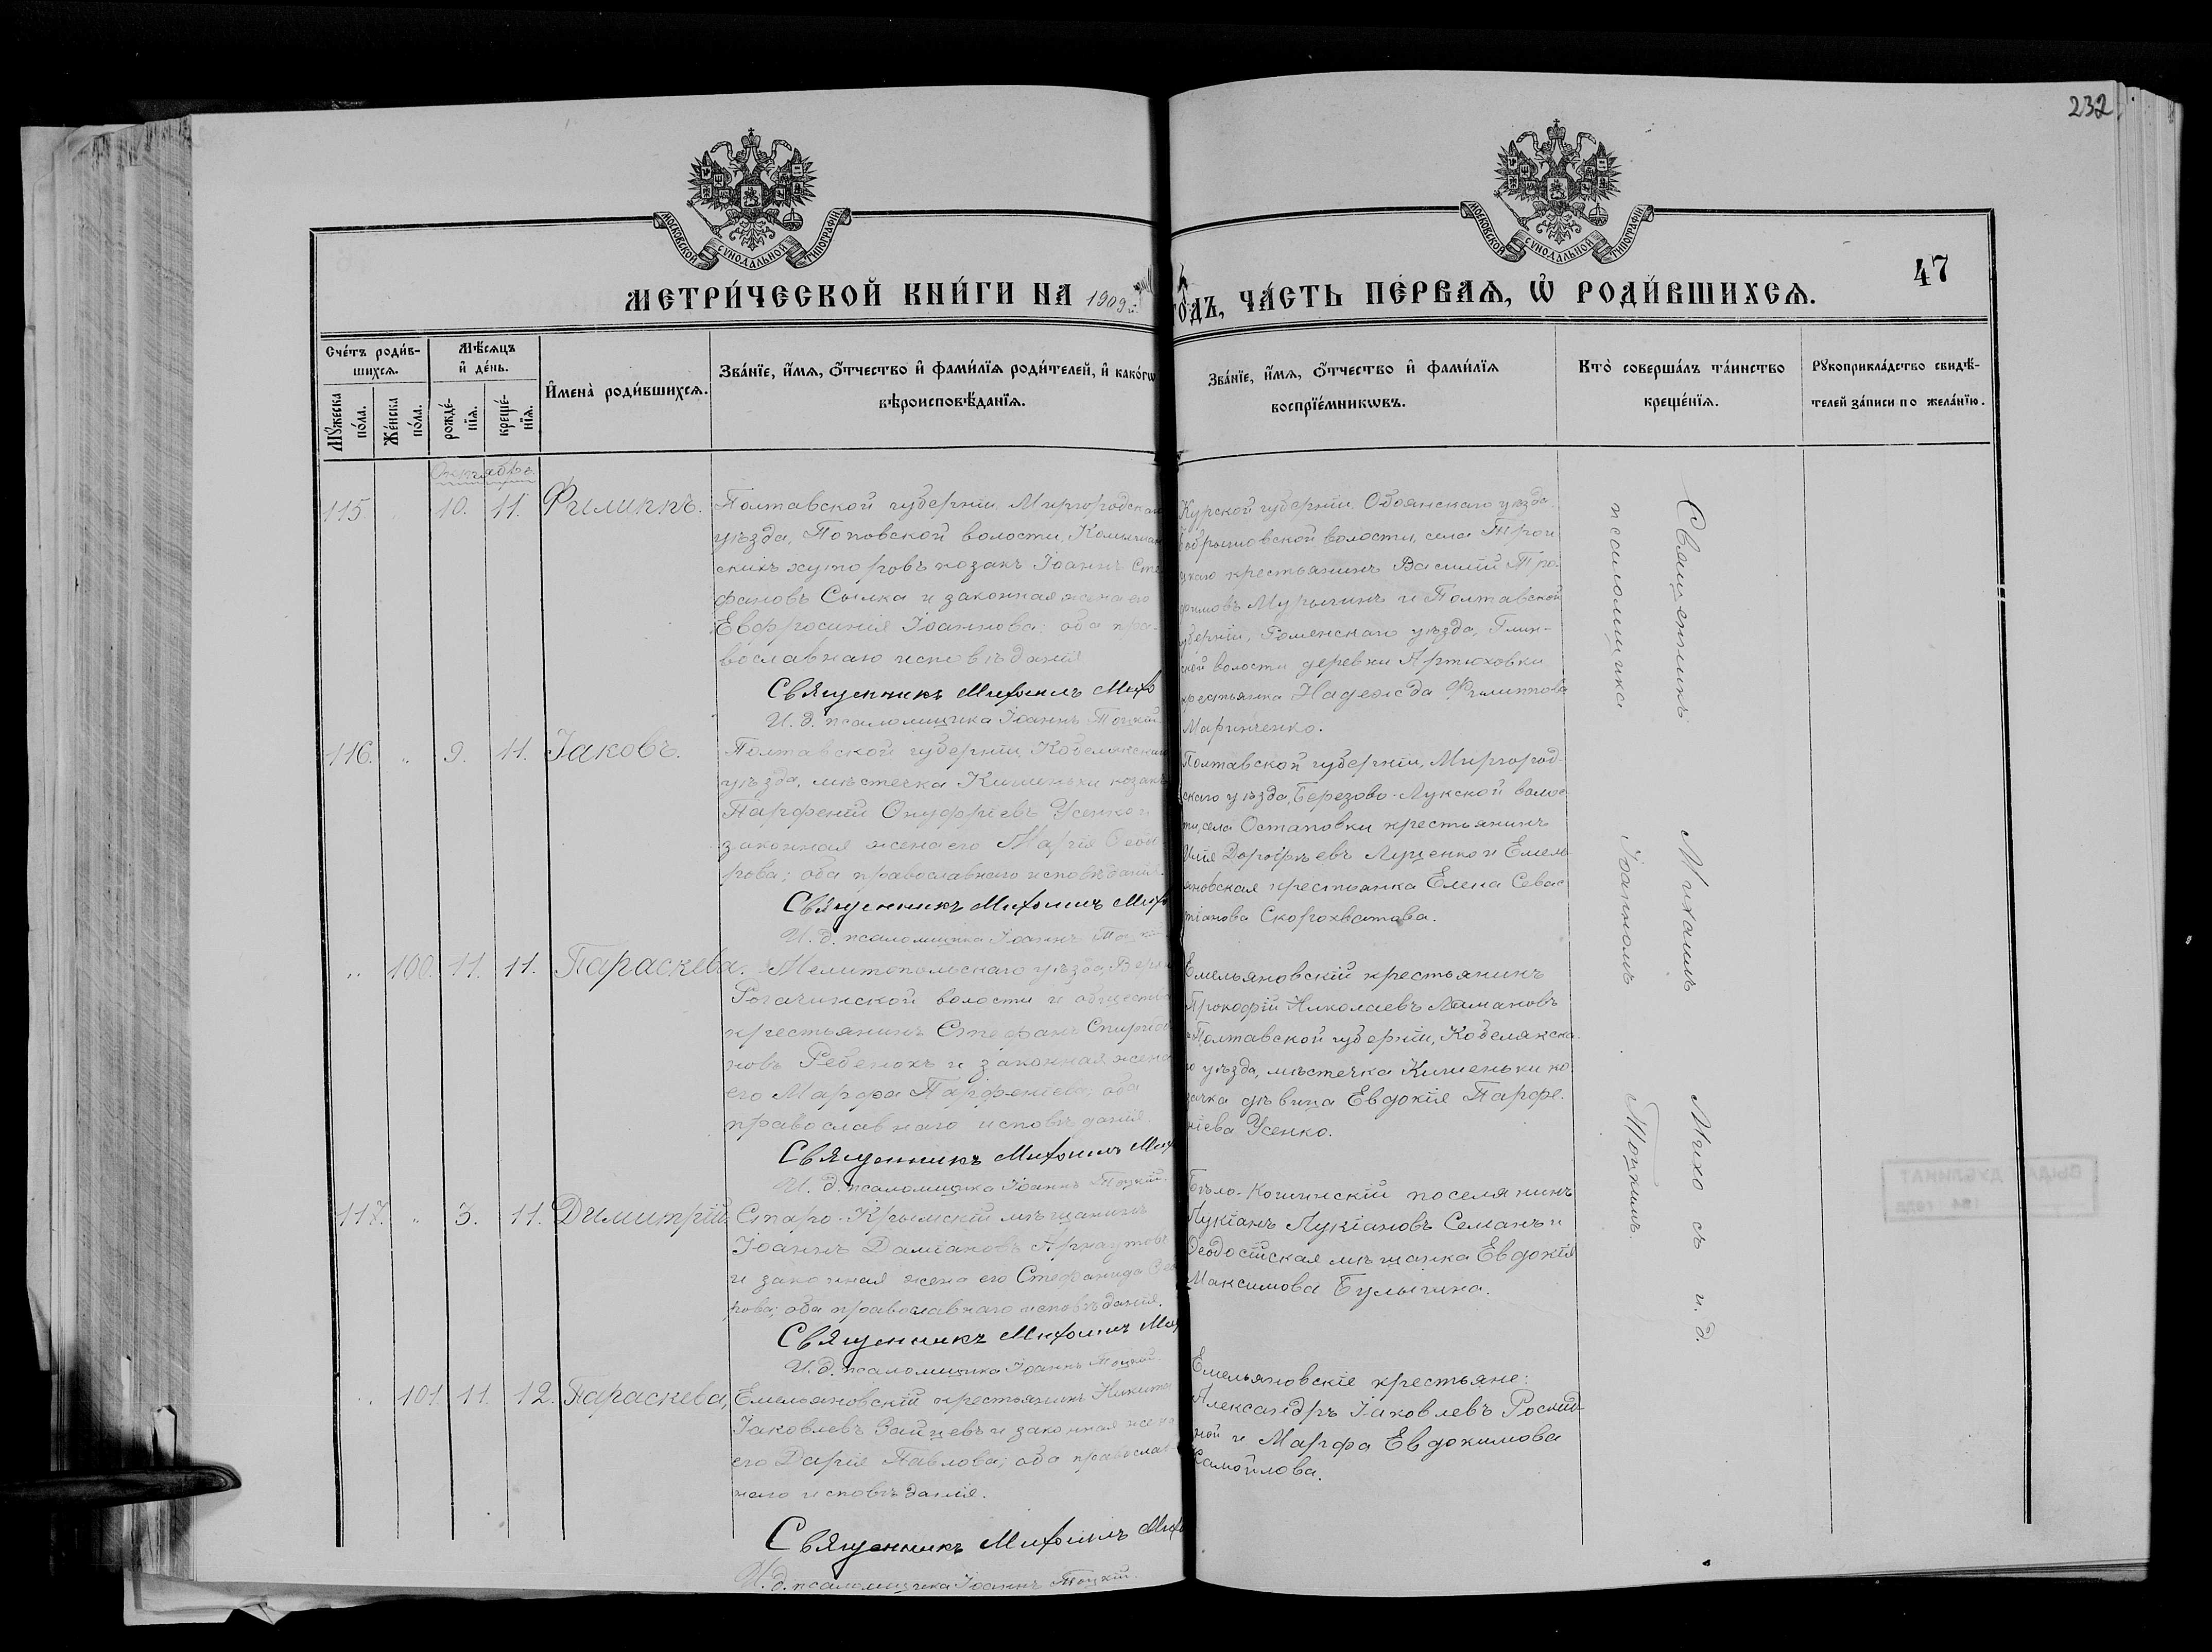 232
МОСКОВСКОЙ СѴНОДАЛЬНОЙ ТИПОГРАФІИ
МОСКОВСКОЙ СѴНОДАЛЬНОЙ ТИПОГРАФІИ
47
МЕТРИ́ЧЕСКОЙ КНИ́ГИ НА 1909й
ГО́ДЪ, ЧА́СТЬ ПЕ́РВАѦ, Ѡ҆ РОДИ́ВШИХСѦ.
Сче́тъ роди́в-
шихсѧ.
Мꙋ́жеска по́ла.
Же́нска по́ла.
Мѣ́сѧцъ
и҆ де́нь.
рожде́-
нїѧ.
креще́-
нїѧ.
И҆мена̀ роди́вшихсѧ.
Зва́нїе, и҆́мѧ, ѻ҆́тчество и҆ фами́лїѧ роди́телей, и҆ како́гѡ
вѣроисповѣ́данїѧ.
Зва́нїе, и҆́мѧ, ѻ҆́тчество и҆ фами́лїѧ
воспрїе́мникѡвъ.
Кто̀ соверша́лъ та́инство
креще́нїѧ.
Рꙋкоприкла́дство свидѣ́-
телей за́писи по жела́нїю.
Октябрь
115 10. 11. Филиппъ.
Полтавской губерніи, Миргородскаго
уѣзда, Поповской волости,
скихъ хуторовъ козакъ Іоаннъ Сте
фановъ Сылка и законная жена его
Евфросинія Іоаннова; оба пра-
вославнаго исповѣданія
Священникъ Михаилъ Михо
И. д. псаломщика Іоаннъ Тоцкій
Курской губерніи, Обоянскаго уѣзда
волости, села Трои
цкаго крестьянинъ Василій Тро-
фимовъ Мурычинъ и Полтавской
губерніи, Роменскаго уѣзда, Глин-
ской волости деревни Артюховки
крестьянка Надежда Филиппова
Маринченко.
116. „ 9. 11. Іаковъ.
Полтавской губерніи, Кобелякскаго
уѣзда, мѣстечка Кишеньки козакъ
Парфеній Онуфріевъ Усенко и
законная жена его Марія Ѳеодо
рова; оба православнаго исповѣданія.
Священникъ Михаилъ Михо
И. д. псаломщика Іоаннъ Тоцкій
Полтавской губерніи, Миргород-
скаго уѣзда, Березово-Лукской волос
ти, села Остаповки крестьянинъ
Илія Дороѳеевъ Луценко и Емель
яновская крестьянка Елена Севас
тіанова Скорохватова.
„ 100. 11. 11. Параскева.
Мелитопольскаго уѣзда, Верхне
Рогачинской волости и общества
крестьянинъ Стефанъ Спиридо
новъ Ребенокъ и законная жена
его Марфа Парфеніева; оба
православнаго исповѣданія.
Священникъ Михаилъ Мих
И. д. псаломщика Іоаннъ Тоцкій.
Емельяновскій крестьянинъ
Прокофій Николаевъ Ламановъ
и Полтавской губерніи, Кобелякска-
го уѣзда, мѣстечка Кишеньки ко
зачка дѣвица Евдокія Парфе-
ніева Усенко.
117. „ 3. 11. Димитрій.
Старо-Крымскій мѣщанинъ
Іоаннъ Даміановъ Арнаутовъ
и законная жена его Стефанида Ѳео
рова; оба православнаго исповѣданія.
Священникъ Михаилъ Мих
И. д. псаломщика Іоаннъ Тоцкій
поселянинъ
Лукіанъ Лукіановъ Семанъ и
Ѳеодосійская мѣщанка Евдокія
Максимова Булыгина.
„ 101 11. 12. Параскева,
Емельяновскій крестьянинъ Никита
Іаковлевъ Зайцевъ и законная жена
его Дарія Павлова; оба православ
наго исповѣданія.
Священникъ Михаилъ Михо
И. д. псаломщика Іоаннъ Тоцкій.
Емельяновскіе крестьяне:
Александръ Іаковлевъ
ной и Марфа Евдокимова
Самойлова.
Священникъ Михаилъ Михо съ и. д.
псаломщика Іоанномъ Тоцкимъ.